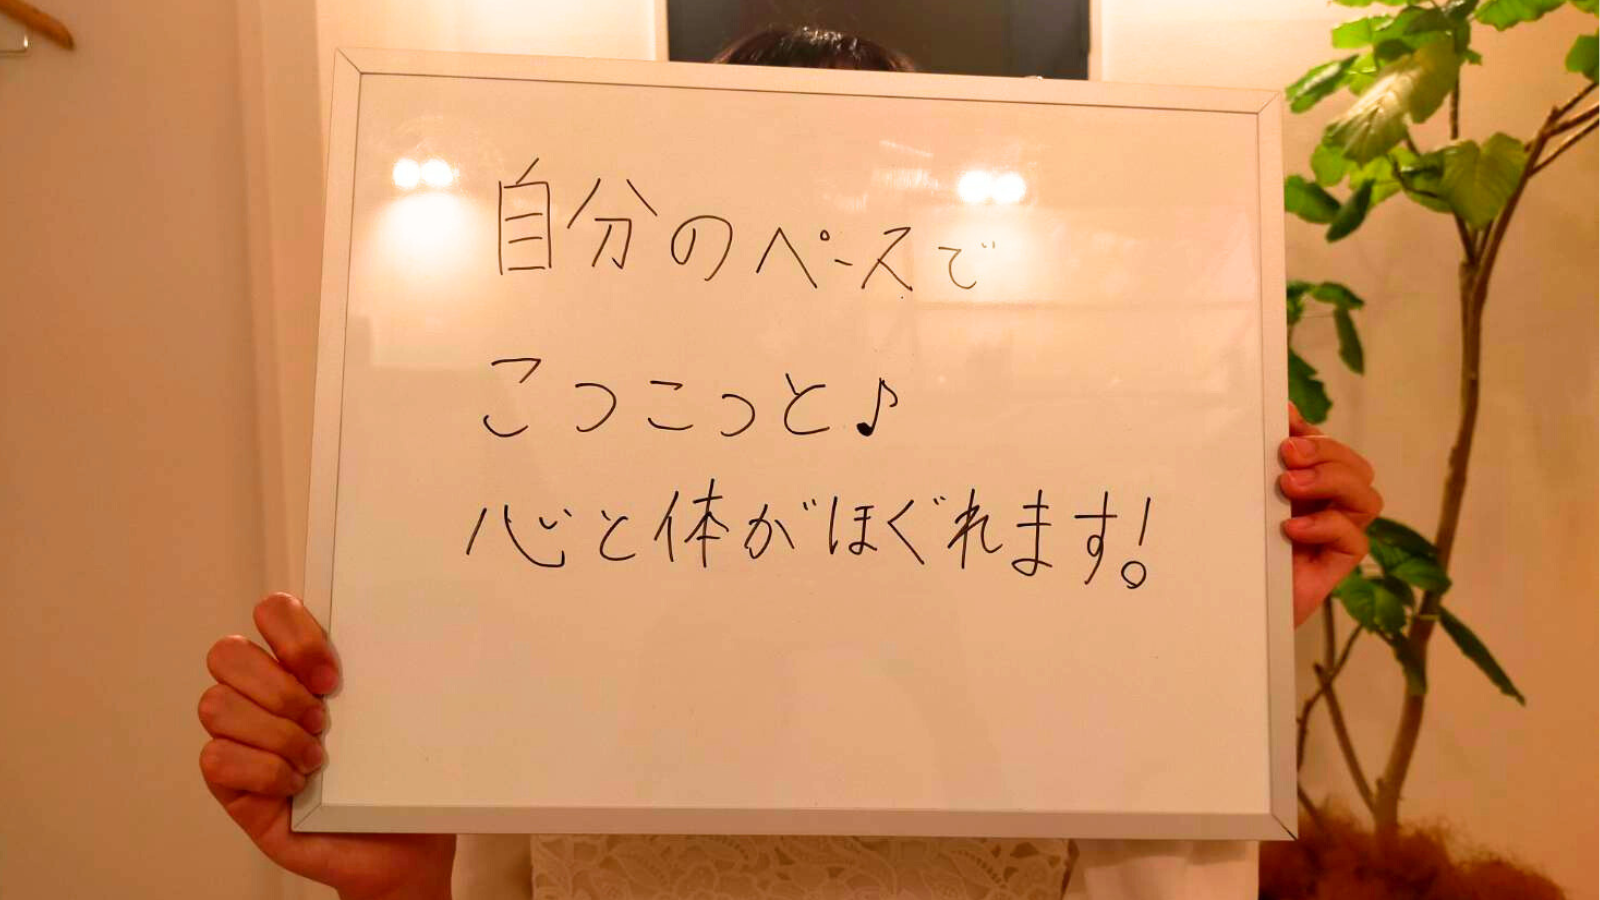 自分のペースで
こつこっと♪
心と体がほぐれます!